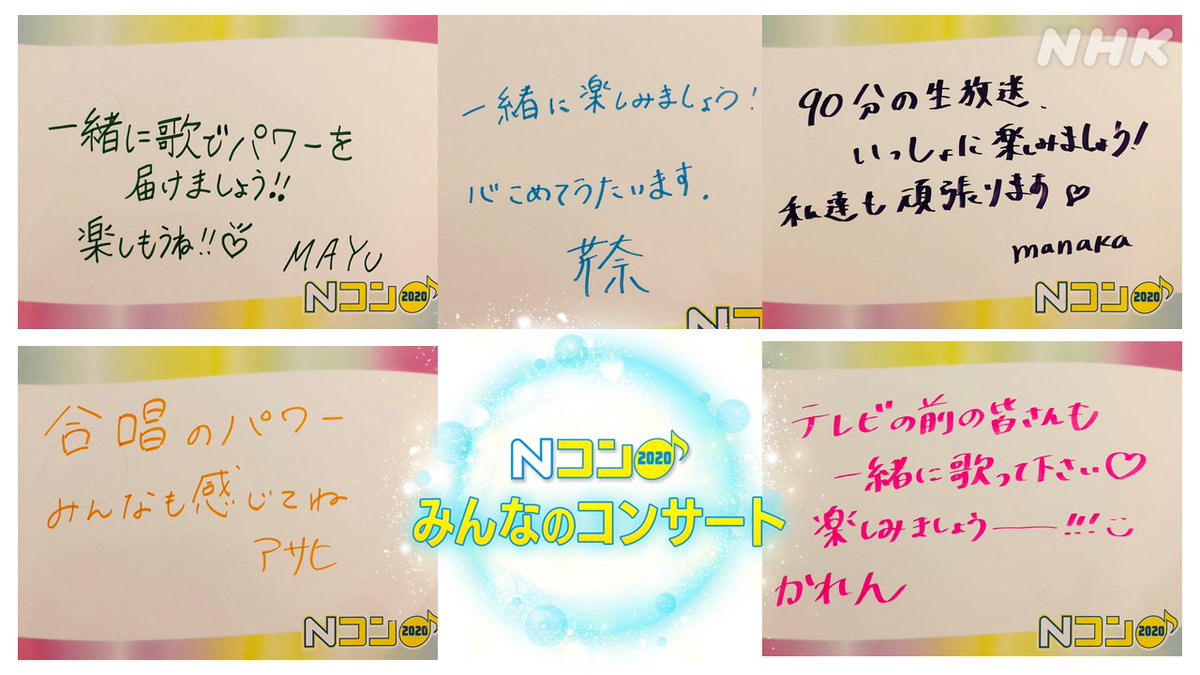 NHK
一緒に歌でパワーを
届けましょう!!
楽しもうね!!♡
MAYU
Nコン2020
一緒に楽しみましょう!
心こめてうたいます.
芹奈
Nコン
90分の生放送、
いっしょに楽しみましょう!
私達も頑張ります♡
manaka
Nコン2020
合唱のパワー
みんなも感じてね
アサヒ
Nコン2020
Nコン2020
みんなのコンサート
テレビの前の皆さんも
一緒に歌って下さい♡
楽しみましょう——!!!
かれん
Nコン2020